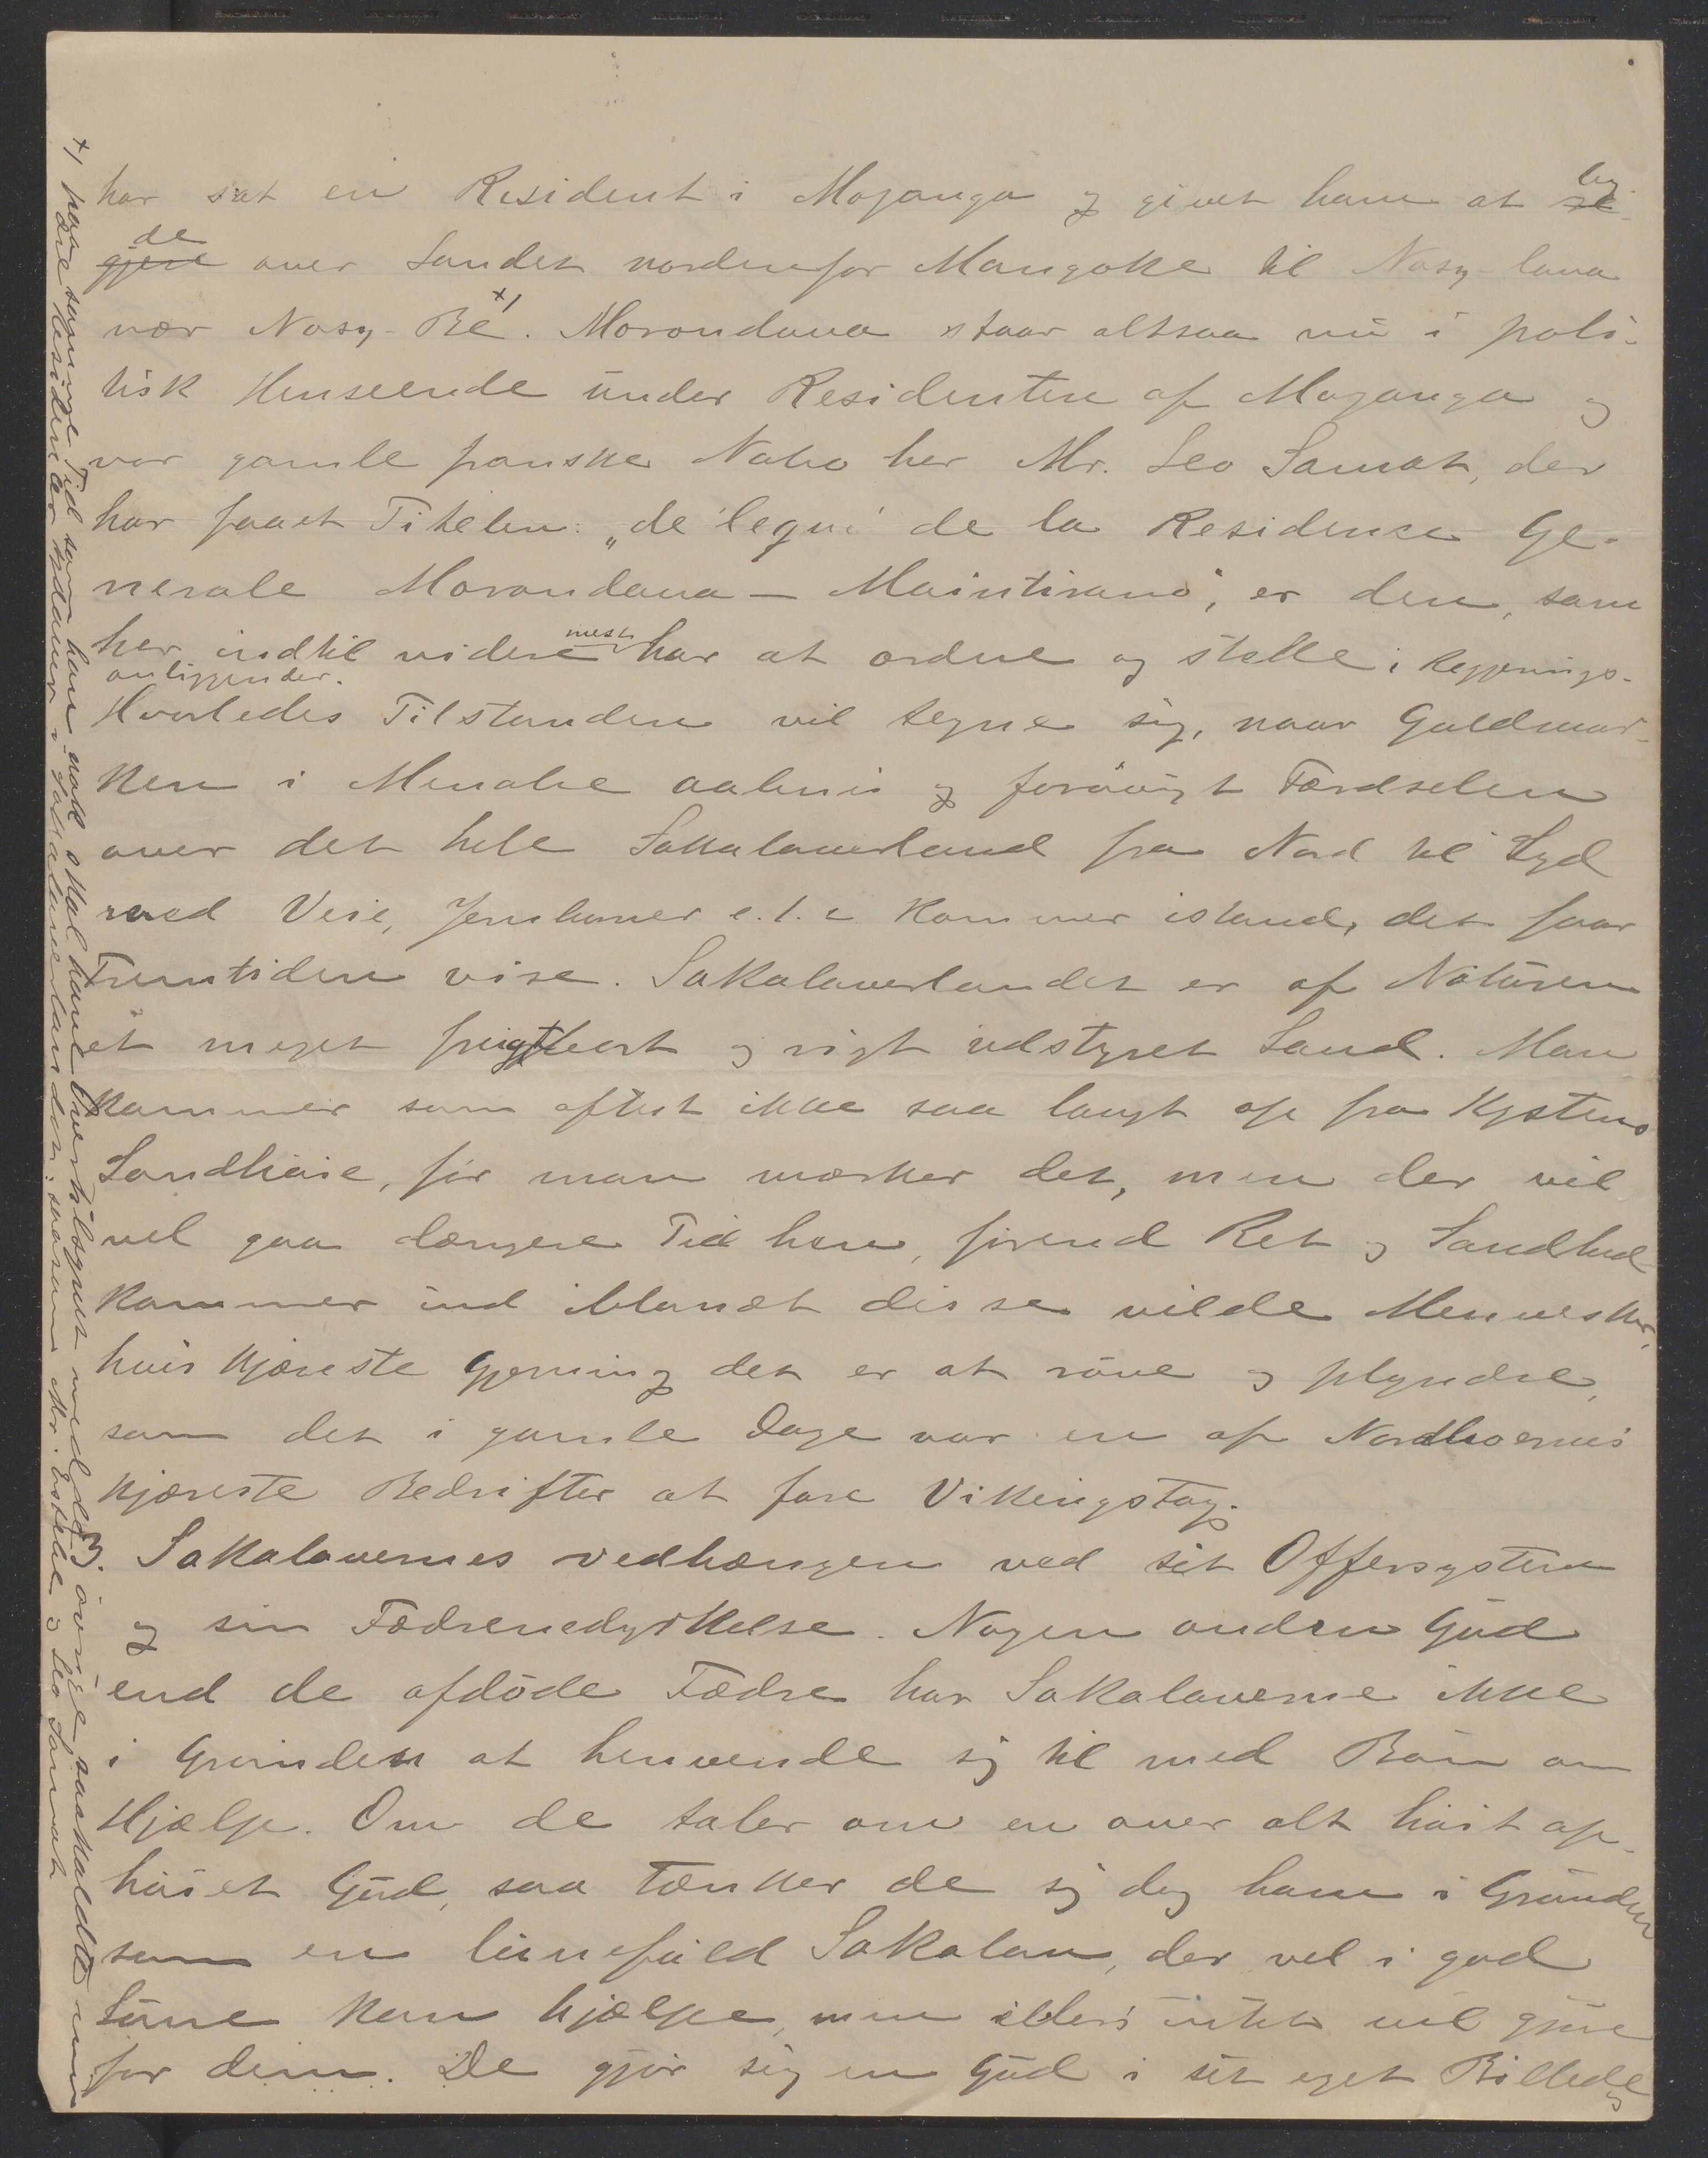 har sat en Resident i Mojanga og givet ham at by-
de over Landet nordenfor Mangoke til Nosy-lava
nær Nosy-Bé x). Morondava staar altsaa nu i poli-
tisk Henseende under Residenten af Mojanga og
vor gamle franske Nabo her Mr. Leo Samat, der
har faaet Titelen: „de legué de la Residence Ge-
nerale Morondava – Maintirano", er den, som
her indtil videre mest har at ordne og stelle i Regjerings-
anliggender.
Hvorledes Tilstanden vil tegne sig, naar Guldmar-
ken i Menabe aabnes og forøvigt Færdselen
over det hele Sakalaverland fra Nord til Syd
med Veie, Jernbaner e.t.c kommer istand, det faar
Fremtiden vise. Sakalaverlandet er af Naturen
et meget frugtbart og rigt udstyret Land. Man
kommer som oftest ikke saa langt op fra Kystens
Sandhøie, før man mærker det, men der vil
vel gaa længere Tid hen, førend Ret og Sandhed
kommer ind iblandt disse vilde Mennesker,
hvis kjæreste Gjerning det er at røve og plyndre,
som det i gamle Dage var en af Nordboernes
kjæreste Bedrifter at fare Vikingstog.
3. Sakalavernes vedhængen ved sit Offersystem
og sin Fædrenedyrkelse. Nogen anden Gud
end de afdøde Fædre har Sakalaverne ikke
i Grunden at henvende sig til med Bøn om
Hjælp. Om de taler om en over alt høit op-
høiet Gud, saa tænker de sig dog ham i Grunden
som en lunefuld Sakalav, der vel i god
Lune kan hjælpe, men ellers intet vil gjøre
for dem. De gjør sig en Gud i sit eget Billede
x) paa samme Tid som han nok skal have tilegnet øvrige saakaldte
Residenter sydover i Sakalaverlandet, saasom Mr. Estèbe og Leo Samat